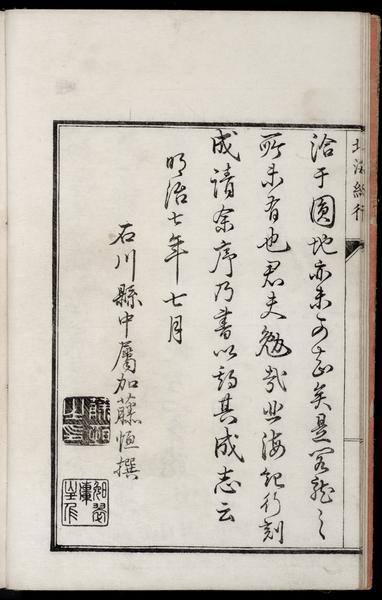 洽于圓地亦未可知矣是君龍之
所未有也君夫勉哉北海紀行刻
成請余序乃書以語其成志云
明治七年七月
石川縣中屬加藤恒撰